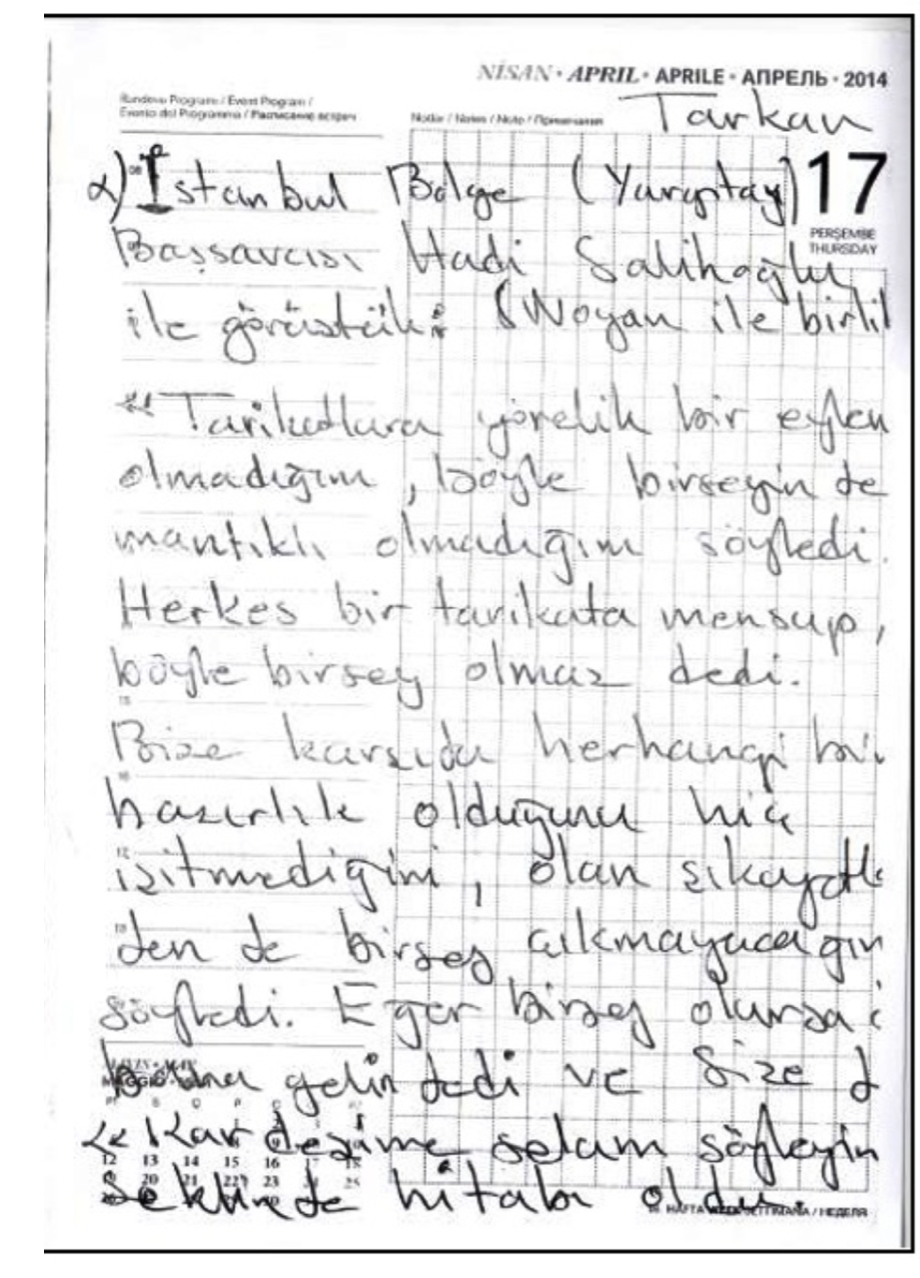 NİSAN • APRIL • APRILE • АПРЕЛЬ • 2014
Randevu Programı / Event Program /
Evento del Programma / Расписание встреч
Notlar / Notes / Note / Примечания
Tarkan
17
PERŞEMBE
THURSDAY
α) İstanbul Bölge (Yargıtay)
Başsavcısı Hadi Salihoğlu
ile görüştük: (Noyan ile birlik
"Tarikatlara yönelik bir eylem
olmadığını, böyle birşeyin de
mantıklı olmadığını söyledi.
Herkes bir tarikata mensup,
böyle birşey olmaz dedi.
Bize karşıda herhangi bir
hazırlık olduğunu hiç
işitmediğini, olan şikayetle
den de birşey çıkmayacağın
söyledi. Eğer birşey olursa
bana gelin dedi ve Size d
"Kardeşime selam söyleyin
şeklinde hitabı oldu.
MAGGIO
12 13 14 15 16 17 18
19 20 21 22 23 24 25
HAFTA / WEEK / SETTIMANA / НЕДЕЛЯ